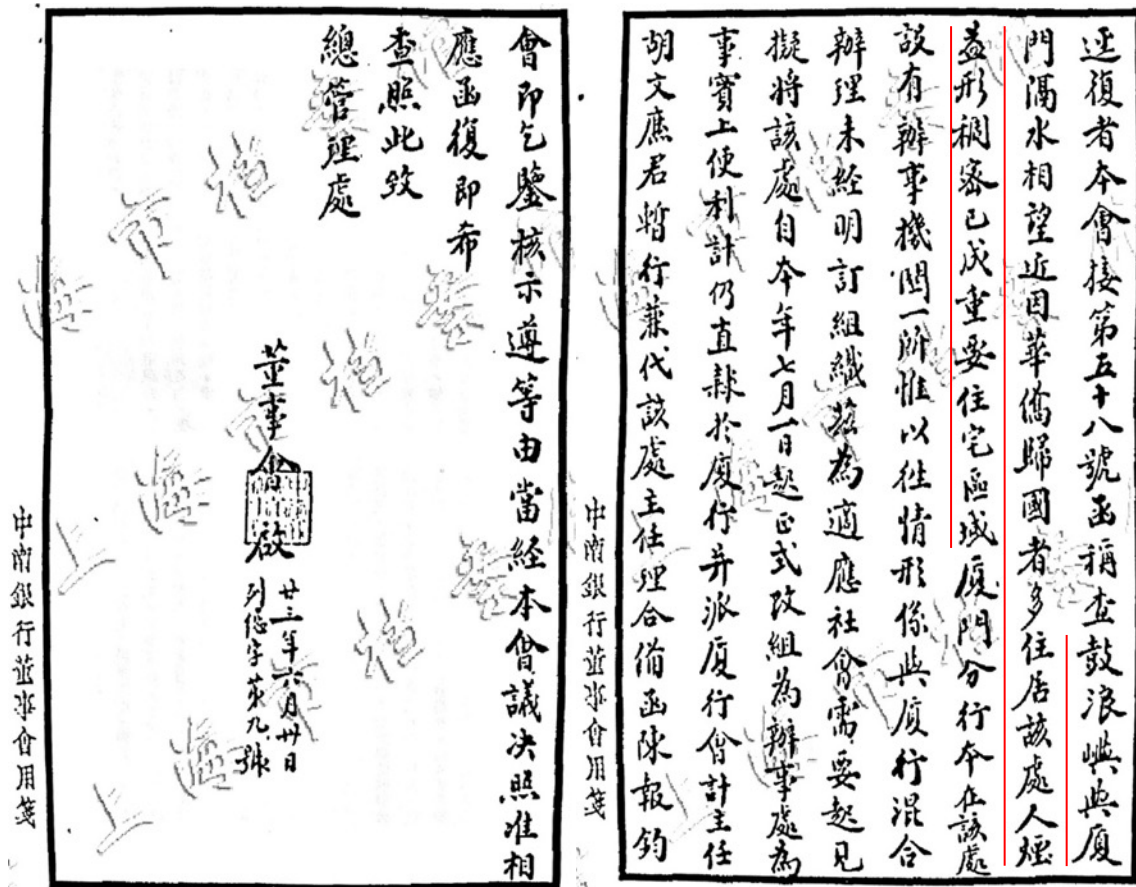 逕復者本會接第五十八號函稱查鼓浪嶼與廈
門隔水相望近因華僑歸國者多住居該處人煙
益形稠密已成重要住宅區域廈門分行本在該處
設有辦事機關一所惟以往情形係與廈行混合
辦理未經明訂組織茲為適應社會需要起見
擬將該處自本年七月一日起正式改組為辦事處為
事實上便利計仍直隸於廈行并派廈行會計主任
胡文庶君暫行兼代該處主任理合備函陳報鈞
中南銀行董事會用箋
會即乞鑒核示遵等由當經本會議決照准相
應函復即希
查照此致
總管理處
董事會啟
廿三年六月卅日
列總字第九號
中南銀行董事會用箋
上海市檔